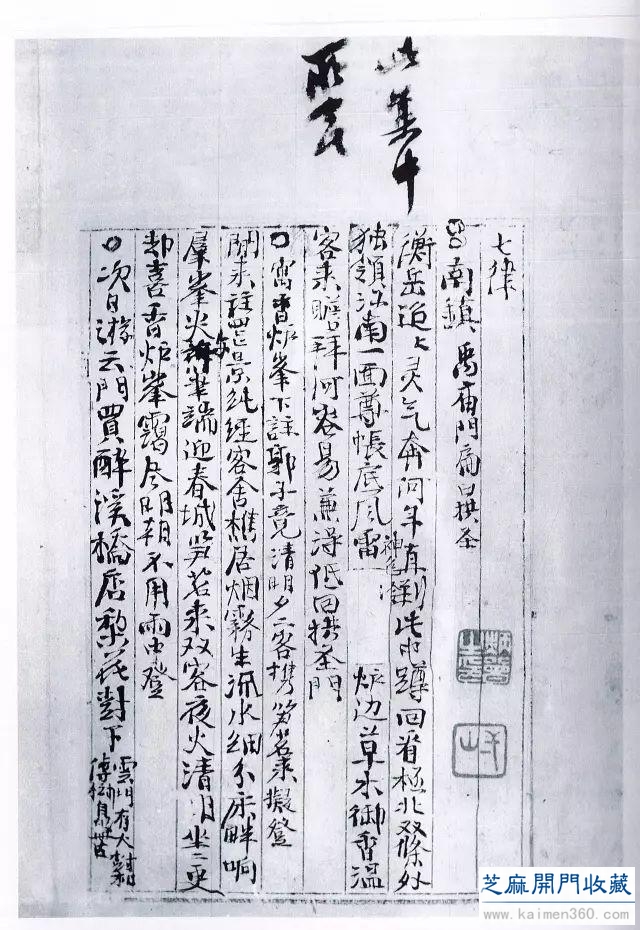 此集中
所無
七律
南鎮 禹庙門扁曰拱圣
衡岳迢々灵气奔何年直到此中蹲回看極北双條外
独領江南一面尊帳底風雷 炉边草木御香温
神色
客来瞻拜何容易兼得低回拱圣門
宿香炉峯下註郭子竟清明夕二客携笋茗来擬登
閑来註罢景純經客舍樵居烟霧生流水细分床畔响
羣峯火 筆端迎春城笋茗来双客夜火清明坐二更
却喜香炉峯靄尽明朝不用雨中登
次日游云門買醉溪橋店梨花對下
雲門有大
傳
芝麻開門收藏
www.kaimen360.com